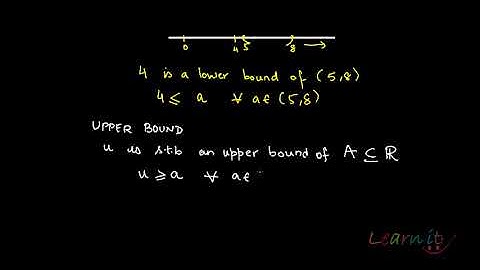 0 4 5 8
4 is a lower bound of (5,8)
4 ≤ a ∀ a∈ (5,8)
UPPER BOUND
u is s.t.b an upper bound of A ⊆ ℝ
u ≥ a ∀ a∈
Learn it